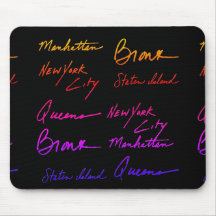 Manhattan Bronx
New York City Staten Island
Queens New York City
Bronx Manhattan
Staten Island Queens